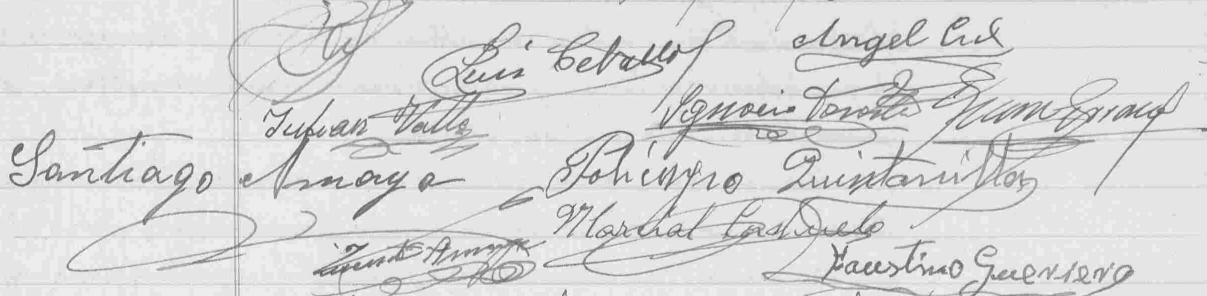 Luis Ceballos Angel Cid
Julian Valle Ignacio
Santiago Amaya Policarpo Quintanilla
Marcial Castrillo
Amaya Faustino Guerrero